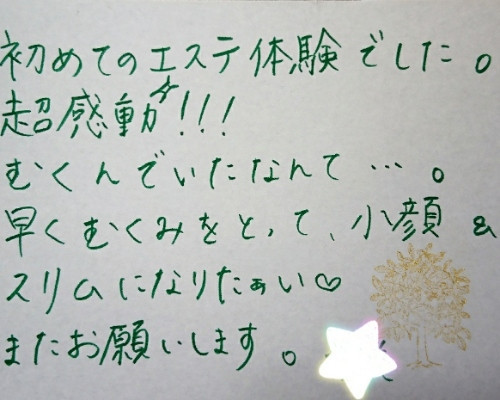 初めてのエステ体験でした。
超感動!!!
むくんでいたなんて…。
早くむくみをとって、小顔&
スリムになりたぁい♡
またお願いします。